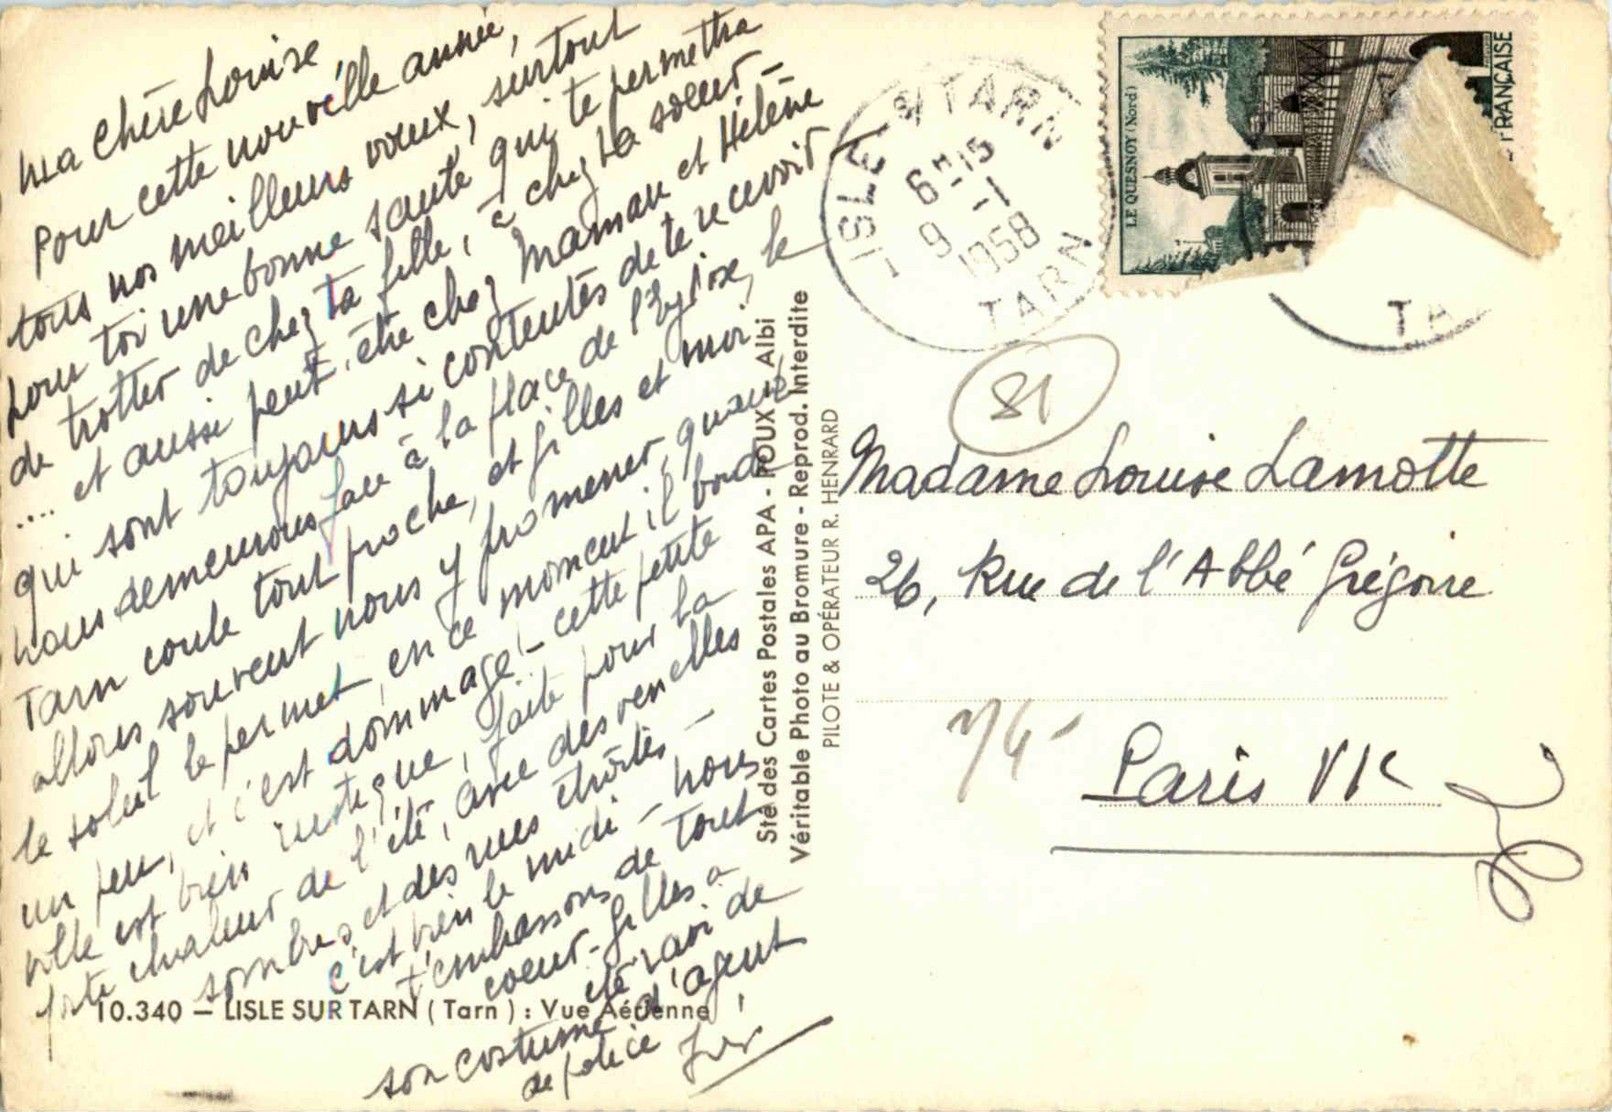 Ma chère Louise,
Pour cette nouvelle année,
tous nos meilleurs vœux, surtout
pour toi une bonne santé qui te permettra
de trotter de chez ta fille, à chez ta sœur –
.... et aussi peut-être chez Maman et Hélène
qui sont toujours si contentes de te recevoir
nous demeurons face à la place de l'Eglise, le
Tarn coule tout proche, et Gilles et moi,
allons souvent nous y promener, quand
le soleil le permet, en ce moment il boude
un peu, et c'est dommage! – cette petite
ville est bien rustique, faite pour la
forte chaleur de l'été, avec des venelles
sombres et des rues étroites –
c'est bien le midi – nous
t'embrassons de tout
coeur – Gilles a
été ravi de
son costume d'agent
de police!
10.340 – LISLE SUR TARN (Tarn) : Vue Aérienne
Sté des Cartes Postales APA - POUX - Albi
Véritable Photo au Bromure - Reprod. Interdite
PILOTE & OPÉRATEUR R. HENRARD
LISLE S/ TARN
6 H 15
9 - 1
1958
TARN
LE QUESNOY (Nord)
FRANÇAISE
TA
81
Madame Louise Lamotte
26, Rue de l'Abbé Grégoire
Paris VIe